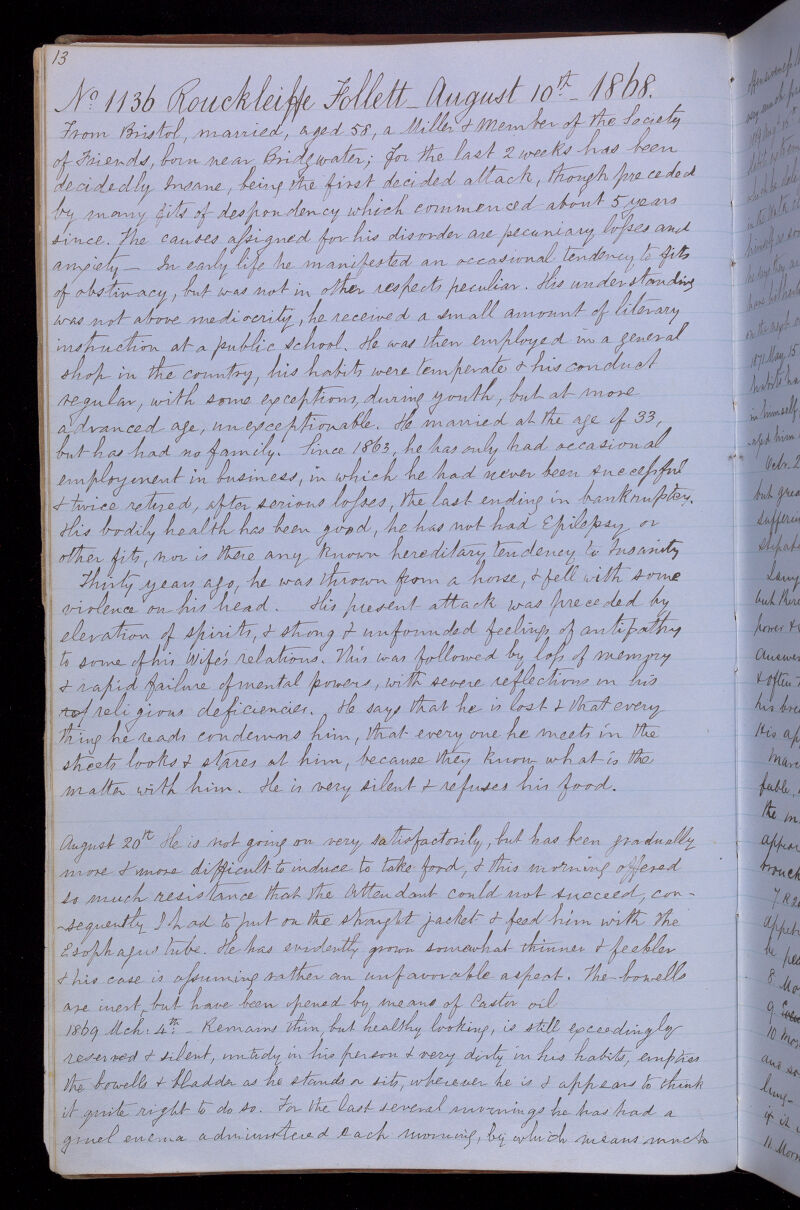 13
No. 1136 Rouckleiffe Follett - August 10th - 1868.
From Bristol, married, aged 58, a Miller & Member of the Society
of Friends, born near Bridgwater; for the last 2 weeks has been
decidedly Insane, being the first decided attack, though preceded
by many fits of despondency which commenced about 5 years
since. The causes assigned for his disorder are pecuniary losses and
anxiety - In early life he manifested an occasional tendency to fits
of obstinacy, but was not in other respects peculiar. His understanding
was not above mediocrity, he received a small amount of literary
instruction at a public school. He was then employed in a general
shop in the country, his habits were temperate & his conduct
regular, with some exceptions, during youth, but at more
advanced age, unexceptionable. He married at the age of 33,
but has had no family. Since 1863, he has only had occasional
employment in business, in which he had never been successful
& twice retired, after serious losses, the last ending in bankruptcy.
His bodily health has been good, he has not had Epilepsy or
other fits, nor is there any known hereditary tendency to Insanity
Thirty years ago, he was thrown from a horse, & fell with some
violence on his head. His present attack was preceded by
elevation of spirits, & strong & unfounded feelings of antipathy
to some of his Wife's relations. This was followed by loss of memory
& rapid failure of mental powers, with severe reflections on his
religious deficiencies. He says that he is lost & that every
thing he reads condemns him, that every one he meets in the
streets looks & stares at him, because they know what is the
matter with him. He is very silent & refuses his food.
August 20th He is not going on very satisfactorily, but has been gradually
more & more difficult to induce to take food, & this morning offered
so much resistance that the Attendant could not succeed, con-
-sequently I had to put on the straight jacket & feed him with the
Esophagus tube. He has evidently grown somewhat thinner & feebler
& his case is assuming rather an unfavorable aspect. The bowells
are inert, but have been opened by means of Castor oil
1869 Mch: 4th - Remains thin, but healthy looking, is still exceedingly
reserved & silent, untidy in his person & very dirty in his habits, empties
the bowells & bladder as he stands or sits, wherever he is & appears to think
it quite right to do so. For the last several mornings he has had a
gruel enema administered each morning, by which means much